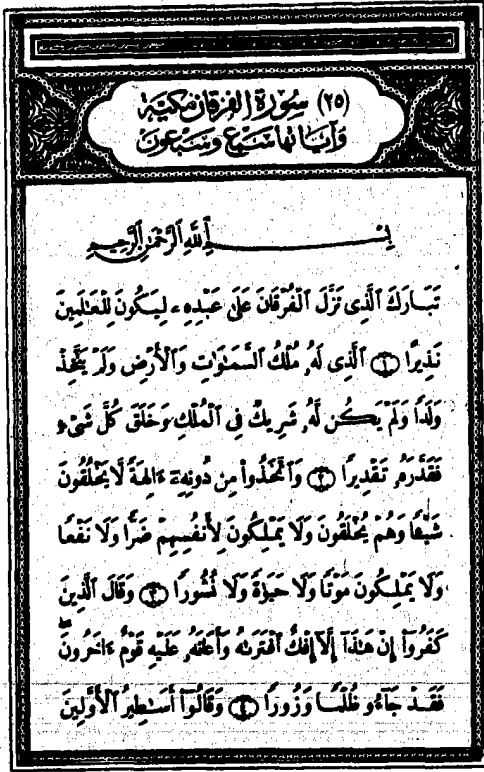 (٢٥) سُورَةُ الفُرقَانِ مَكيَّة
وَآيَاتُهَا سَبْعٌ وَسَبْعُونَ
بِسْمِ ٱللَّهِ ٱلرَّحْمَٰنِ ٱلرَّحِيمِ
تَبَارَكَ ٱلَّذِى نَزَّلَ ٱلْفُرْقَانَ عَلَىٰ عَبْدِهِۦ لِيَكُونَ لِلْعَٰلَمِينَ
نَذِيرًا ۝١ ٱلَّذِى لَهُۥ مُلْكُ ٱلسَّمَٰوَٰتِ وَٱلْأَرْضِ وَلَمْ يَتَّخِذْ
وَلَدًا وَلَمْ يَكُن لَّهُۥ شَرِيكٌ فِى ٱلْمُلْكِ وَخَلَقَ كُلَّ شَىْءٍ
فَقَدَّرَهُۥ تَقْدِيرًا ۝٢ وَٱتَّخَذُوا۟ مِن دُونِهِۦٓ ءَالِهَةً لَّا يَخْلُقُونَ
شَيْـًٔا وَهُمْ يُخْلَقُونَ وَلَا يَمْلِكُونَ لِأَنفُسِهِمْ ضَرًّا وَلَا نَفْعًا
وَلَا يَمْلِكُونَ مَوْتًا وَلَا حَيَوٰةً وَلَا نُشُورًا ۝٣ وَقَالَ ٱلَّذِينَ
كَفَرُوٓا۟ إِنْ هَٰذَآ إِلَّآ إِفْكٌ ٱفْتَرَىٰهُ وَأَعَانَهُۥ عَلَيْهِ قَوْمٌ ءَاخَرُونَ ۖ
فَقَدْ جَآءُو ظُلْمًا وَزُورًا ۝٤ وَقَالُوٓا۟ أَسَٰطِيرُ ٱلْأَوَّلِينَ